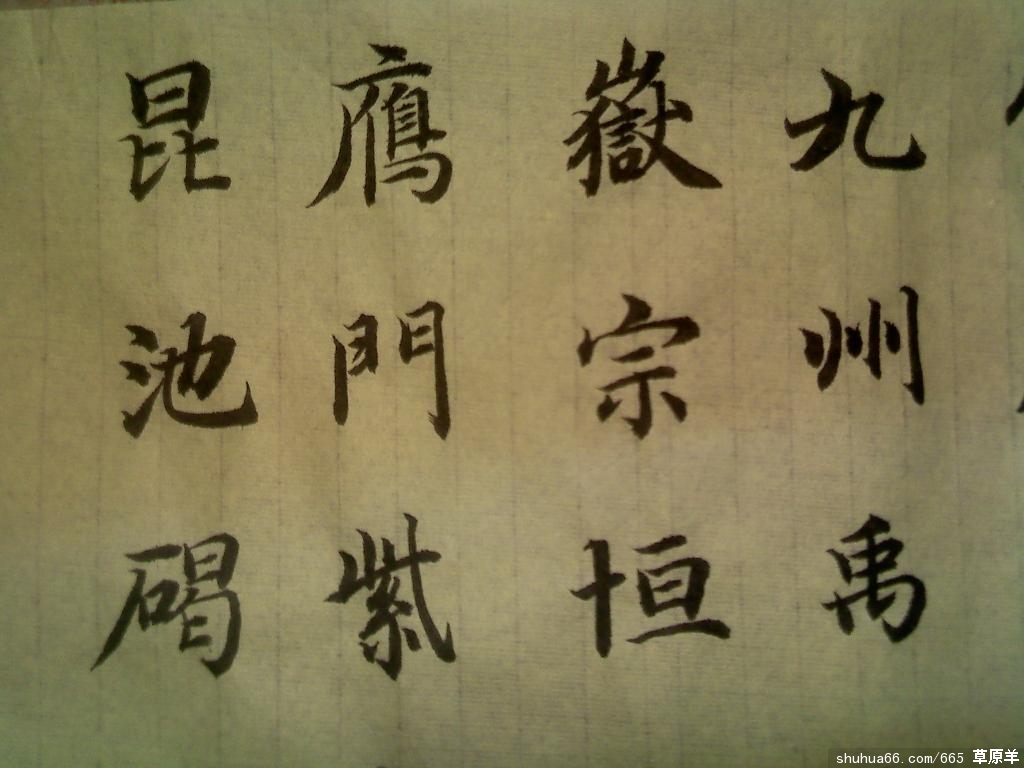 九州禹
嶽宗恒
鴈門紫
昆池碣
shuhua66.com/665 草原羊